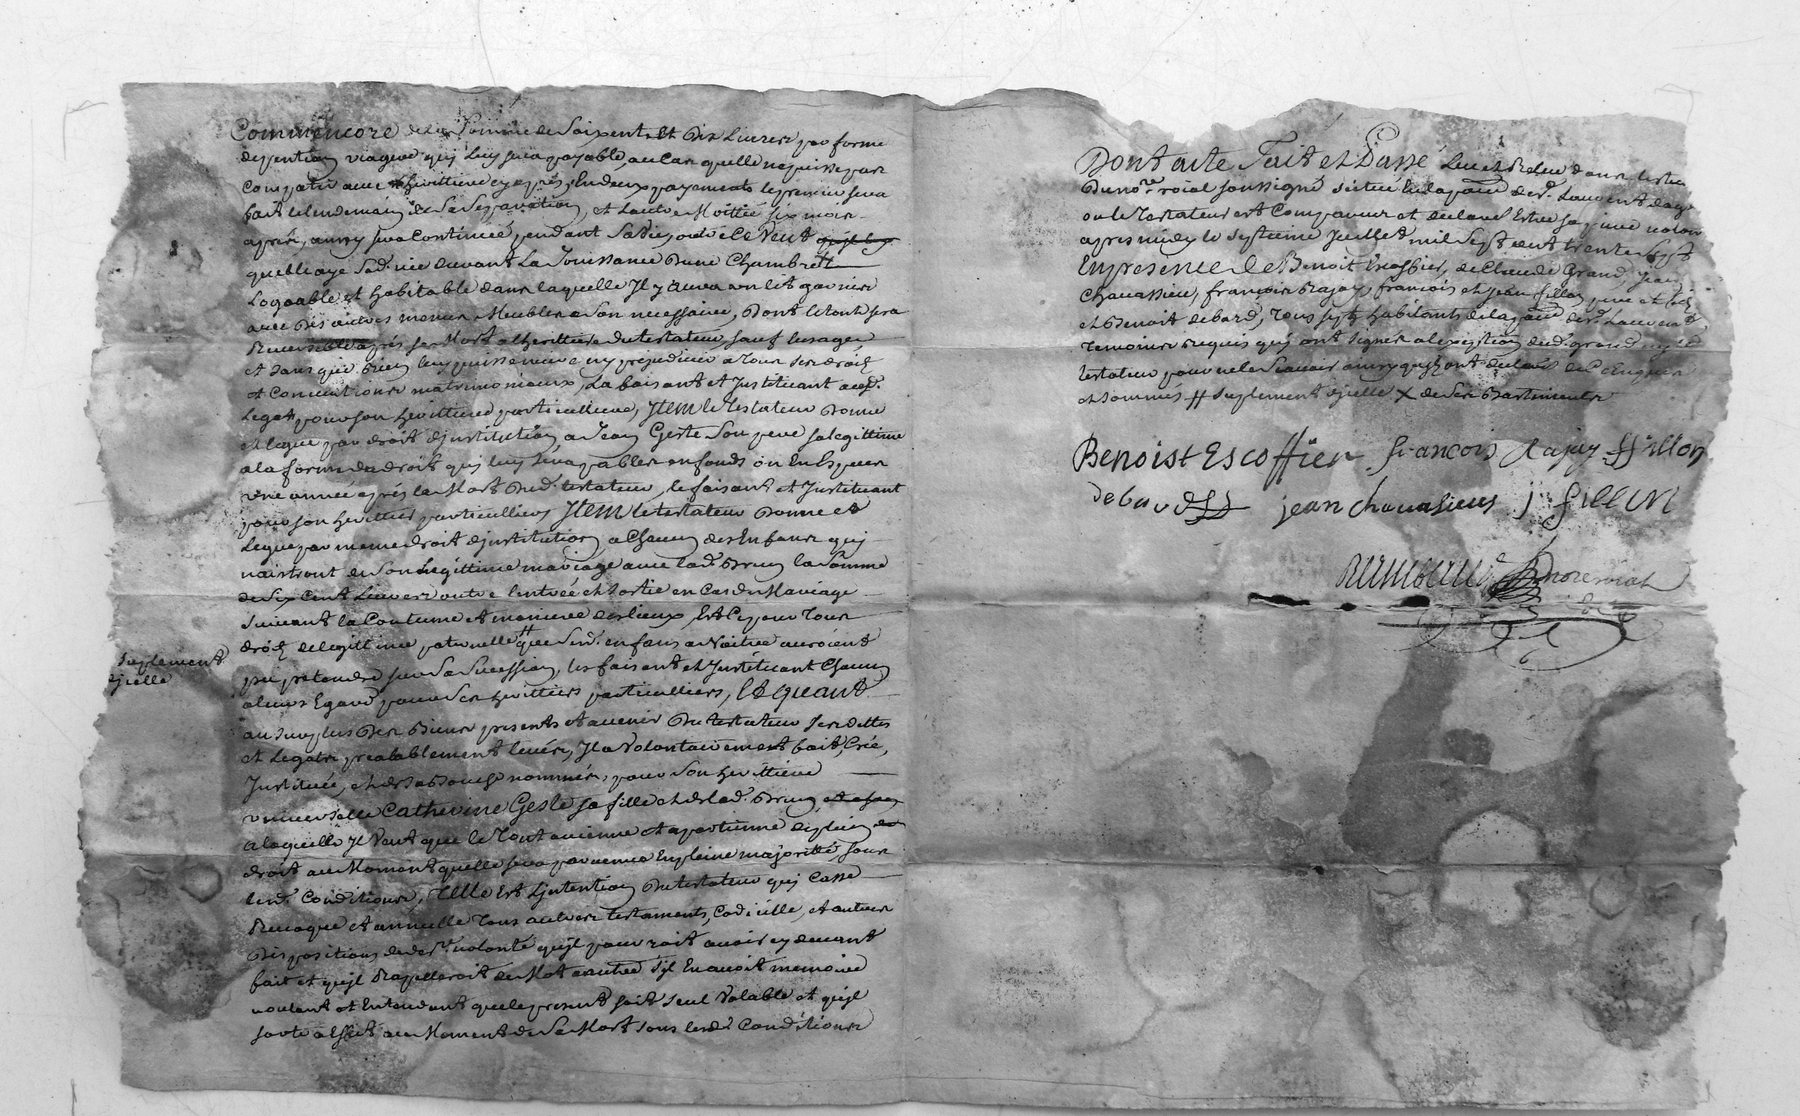 Comm'encore de la Somme de Soixente Et Dix Livres par forme
de pention viagere quj luy sera payable, au Cas quelle ne puisse pas
Compatir avec heritiere cy apres, En deux payements le premier sera
fait le lendemain de Sa Separation, et Lautre Moittié six mois
apres, ainsy sera Continüé pendant Sa Vie, outre ce Veut
quelle aye Sad. vie durant La Jouissance Dune Chambre
Logeable et habitable dans laquelle Jl y aura un lit garnis
avec Des autres menus Meubles a Son necessaire, Dont le tout sera
Reversible apres sa Mort a lheritiere du testateur, sauf lusage
et sans que rien luy puisse nuire ny prejudicier a tous ses droits
et Conventions matrimoniaux, La faisant et Jnstituant aud.
Legat pour son heritiere particulliere, Jtem le testateur Donne
et legue par droit djnstitution, a Jean Geste Son pere sa legittime
a la forme du droit quj luy sera payable en fonds ou En Especes
une année apres la Mort Dud. testateur, le faisant et Jnstituant
pour son heritier particullier, Jtem le testateur Donne et
Legue par meme droit djnstitution a Chacun des Enfans quj
naistront de Son Legittime mariage avec lad. Brun la Somme
de Six Cent Livres outre lentrée et Sortie en Cas de Mariage
Suivant la Coutume et maniere des lieux, Et Ce pour tous
droits de legittime paternelle # que Sesd. enfans a Naitre auroient
suplement
djcelle
pu pretendre sur Sa Sucession, les faisant et Jnstituant Chacun
a leurs Egard pour Ses heritiers particulliers, Et quant
au Surplus Des Biens presents et avenir Du testateur ses dettes
et Legats prealablement levés, Jl a Volontairement fait, Créé,
Jnstitué, et de sa Bouche nommée, pour Son heritiere
universelle Catherine Geste sa fille et de lad. Brun,
a laquelle Jl Veut que le tout avienne et apartienne de plein
droit au Moment quelle sera parvenue En pleine majorité, sous
lesd. Conditions, Telle Est Ljntention Du testateur quj Casse
Revoque et annulle tous autres testaments, Codicille, et autres
Dispositions de der.re volonté qujl pourroit avoir cy devant
fait et qujl Rapelleroit de Mot a autre Sjl En avoit memoire
voulant et Entendant que le present soit seul Valable et qujl
sorte a Effet au Moment de Sa Mort sous lesd. Conditions
Dont acte Fait et Passé Lu et Relu dans
Du no.re roial soussigné scitue En la parr. de S.t Laurent
ou le testateur est Comparus et declaré Estre sa
apres midy le Septieme Juillet mil Sept cent trente Sept
En presence de Benoit Escoffier, de Claude Grand, Jean
Chavassieu, françois Rajay, françois et jean fillon pere et
et Benoit debard, tous sept habitants de la parr. de S.t Laurent,
temoins requis quj ont signés a lexeption dud. grand
testateur pour ne le Scavoir ainsy qujls ont declaré de Ce Enquis
et sommés # suplement djcelle X de Ses Bastiments
Benoist Escoffier francois Rajay f fillon
debard jean chavasieus j fillon